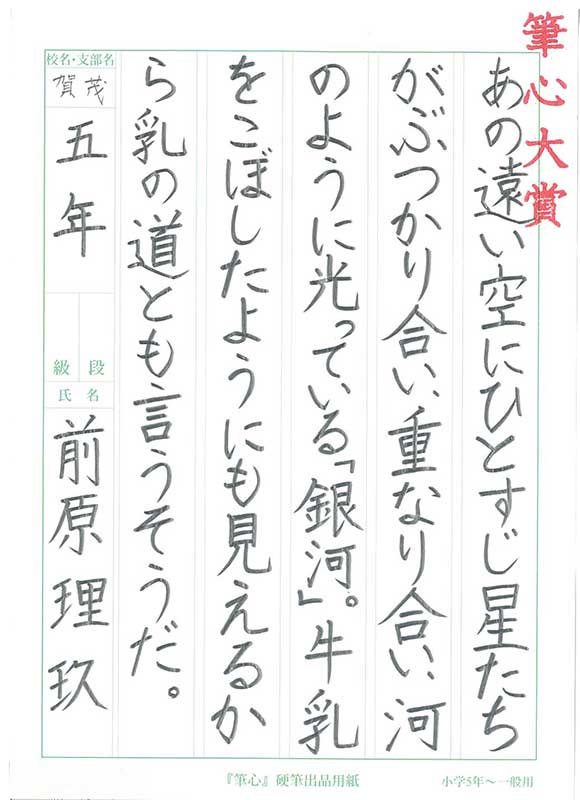 筆心大賞
あの遠い空にひとすじ星たち
がぶつかり合い、重なり合い、河
のように光っている「銀河」。牛乳
をこぼしたようにも見えるか
ら乳の道とも言うそうだ。
校名・支部名
賀茂
五年
段
級
氏名
前原理玖
『筆心』硬筆出品用紙
小学5年〜一般用